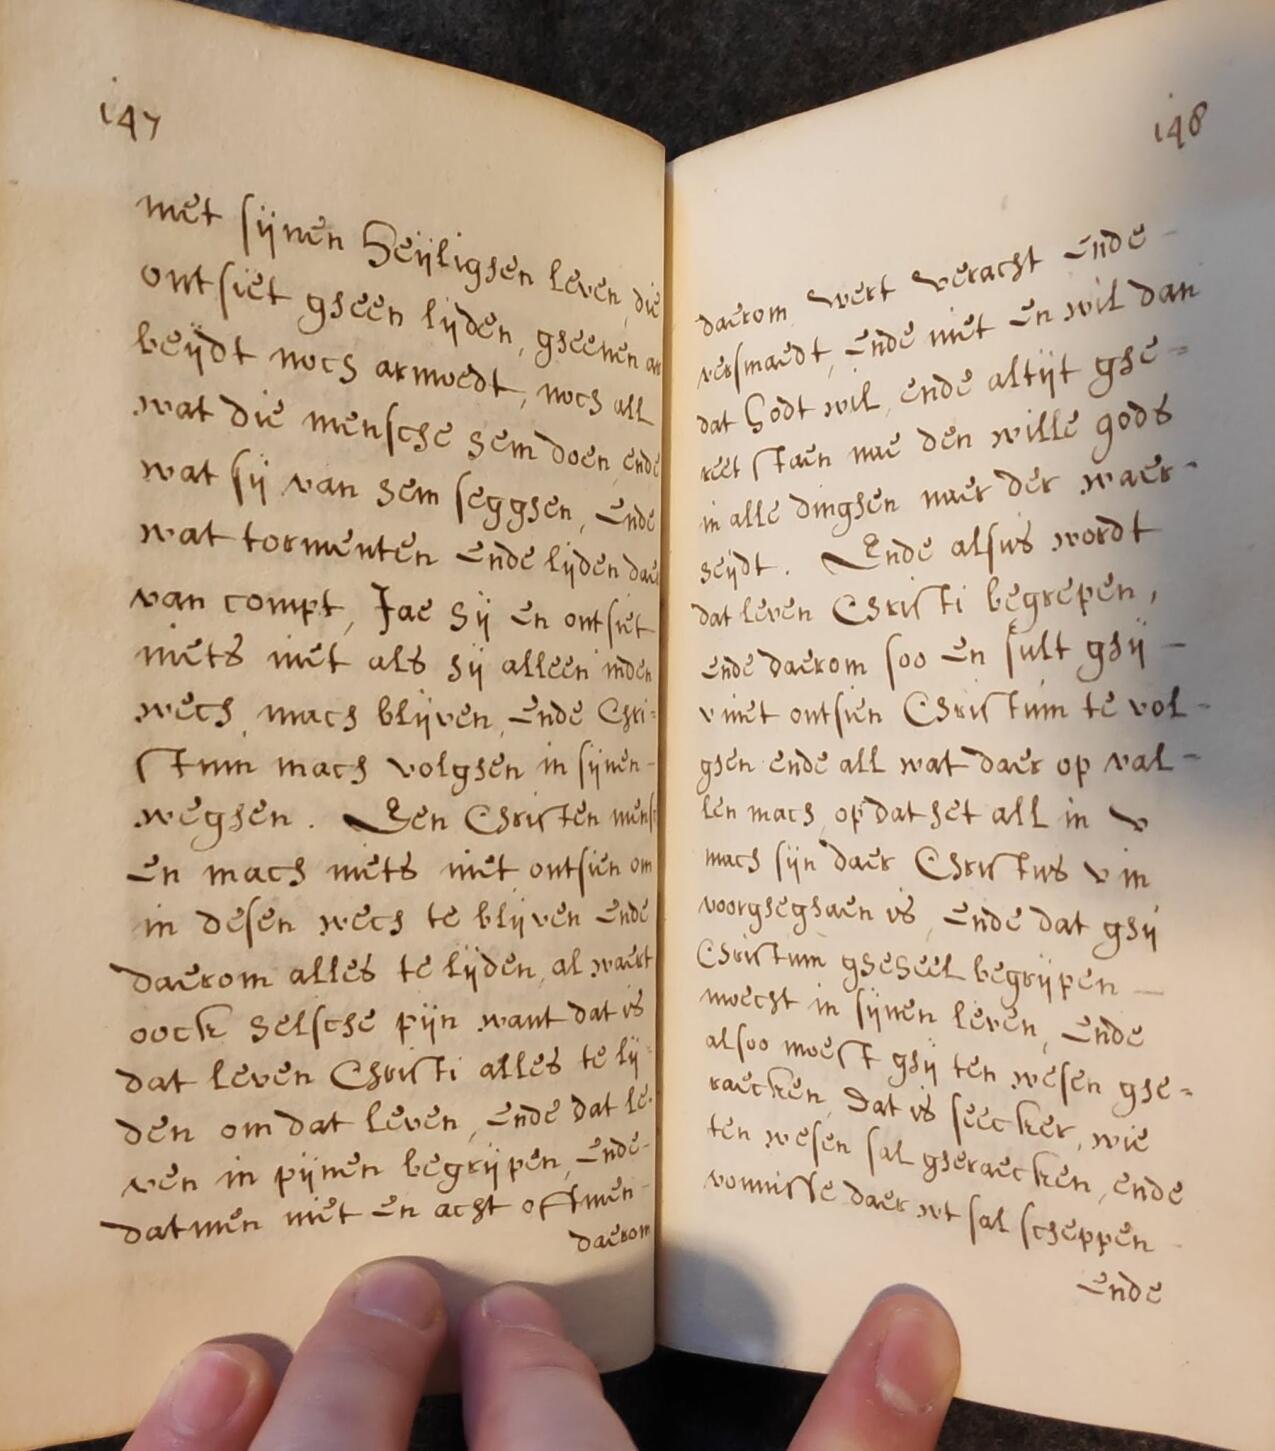 147
met sijnen Heijlighen leven, die
ontsiet gheen lijden, gheenen ar
beijdt noch armoedt, noch all
wat die mensche hem doen, ende
wat sij van hem segghen, Ende
wat tormenten Ende lijden daer
van compt, Jae hij en ontsiet
niets niet als hij alleen inden
wech mach blijven, Ende Chri=
stum mach volghen in sijnen-
weghen. Een Christen mens
en mach niets niet ontsien om
in desen wech te blijven Ende
daerom alles te lijden, al waert
oock helsche pijn want dat is
dat leven Christi alles te lij=
den om dat leven, Ende dat le-
ven in pijnen begrijpen, Ende-
datmen niet en acht oftmen-
daerom
148
daerom wert veracht Ende -
versmaedt, Ende niet En wil dan
dat Godt wil, ende altijt ghe=
reet staen nae den wille gods
in alle dinghen naer der waer-
heijdt. Ende alsus wordt
dat leven Christi begrepen,
ende daerom soo en sult ghij -
v niet ontsien Christum te vol-
ghen ende all wat daer op val-
len mach, op dat het all in v
mach sijn daer Christus v in
voorgheghaen is, Ende dat ghij
Christum gheheel begrijpen -
moecht in sijnen leven, Ende
alsoo moest ghij ten wesen ghe=
raecken, Dat is seecker, wie
ten wesen sal gheraecken, ende
vonnisse daer wt sal scheppen -
Ende